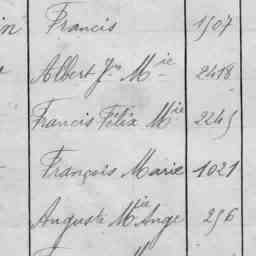 in Francis 1507
Albert Jn Mie 2418
Francis Félix Mie 2245
François Marie 1021
Auguste Mie Ange 256